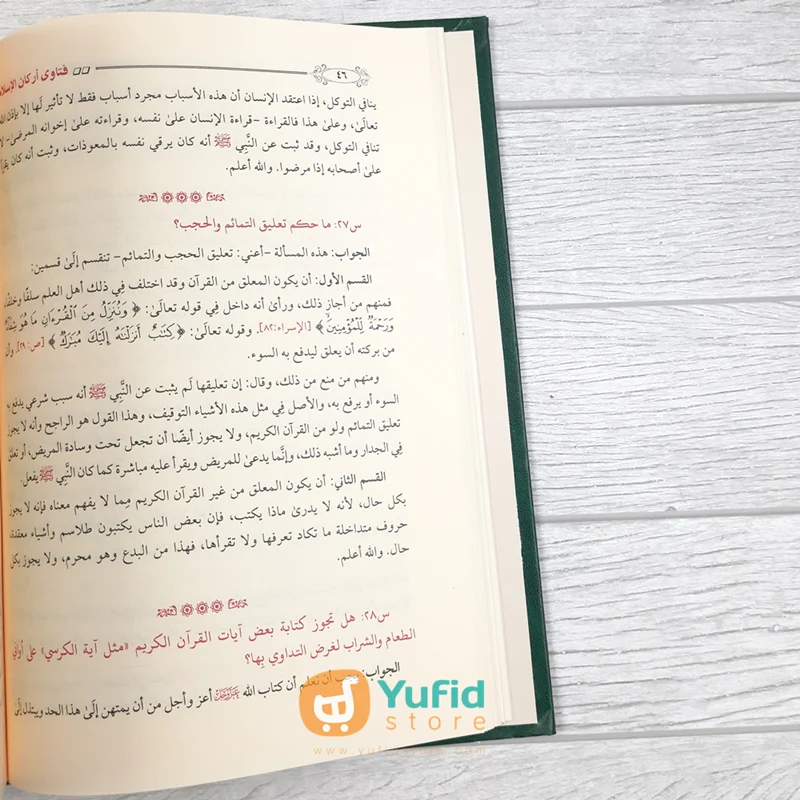 ٤٦
فتاوى أركان الإسلام
ينافي التوكل، إذا اعتقد الإنسان أن هذه الأسباب مجرد أسباب فقط لا تأثير لَها إلا بإذن الله
تعالَىٰ، وعلىٰ هذا فالقراءة -قراءة الإنسان علىٰ نفسه، وقراءته علىٰ إخوانه المرضىٰ- لا
تنافي التوكل، وقد ثبت عن النَّبِي ﷺ أنه كان يرقي نفسه بالمعوذات، وثبت أنه كان يقرأ
علىٰ أصحابه إذا مرضوا. والله أعلم.
س٢٧: ما حكم تعليق التمائم والحجب؟
الجواب: هذه المسألة -أعني: تعليق الحجب والتمائم- تنقسم إلَىٰ قسمين:
القسم الأول: أن يكون المعلق من القرآن وقد اختلف فِي ذلك أهل العلم سلفًا وخلفًا
فمنهم من أجاز ذلك، ورأىٰ أنه داخل فِي قوله تعالَىٰ: ﴿ وَنُنَزِّلُ مِنَ ٱلْقُرْءَانِ مَا هُوَ شِفَآءٌ
وَرَحْمَةٌ لِّلْمُؤْمِنِينَ﴾ [الإسراء:٨٢]. وقوله تعالَىٰ: ﴿كِتَٰبٌ أَنزَلْنَٰهُ إِلَيْكَ مُبَٰرَكٌ﴾ [ص: ٢٩]. وأن
من بركته أن يعلق ليدفع به السوء.
ومنهم من منع من ذلك، وقال: إن تعليقها لَم يثبت عن النَّبِي ﷺ أنه سبب شرعي يدفع به
السوء أو يرفع به، والأصل فِي مثل هذه الأشياء التوقيف، وهذا القول هو الراجح وأنه لا يجوز
تعليق التمائم ولو من القرآن الكريم، ولا يجوز أيضًا أن تجعل تحت وسادة المريض، أو تعلق
فِي الجدار وما أشبه ذلك، وإنَّما يدعىٰ للمريض ويقرأ عليه مباشرة كما كان النَّبِي ﷺ يفعل.
القسم الثاني: أن يكون المعلق من غير القرآن الكريم مِما لا يفهم معناه فإنه لا يجوز
بكل حال، لأنه لا يدرىٰ ماذا يكتب، فإن بعض الناس يكتبون طلاسم وأشياء معقدة
حروف متداخلة ما تكاد تعرفها ولا تقرأها، فهذا من البدع وهو محرم، ولا يجوز بكل
حال. والله أعلم.
س٢٨: هل تجوز كتابة بعض آيات القرآن الكريم «مثل آية الكرسي» علىٰ أواني
الطعام والشراب لغرض التداوي بِها؟
الجواب: يجب أن نعلم أن كتاب الله عَزَّوَجَلَّ أعز وأجل من أن يمتهن إلَىٰ هذا الحد ويبتذل إلَىٰ
Yufid
store